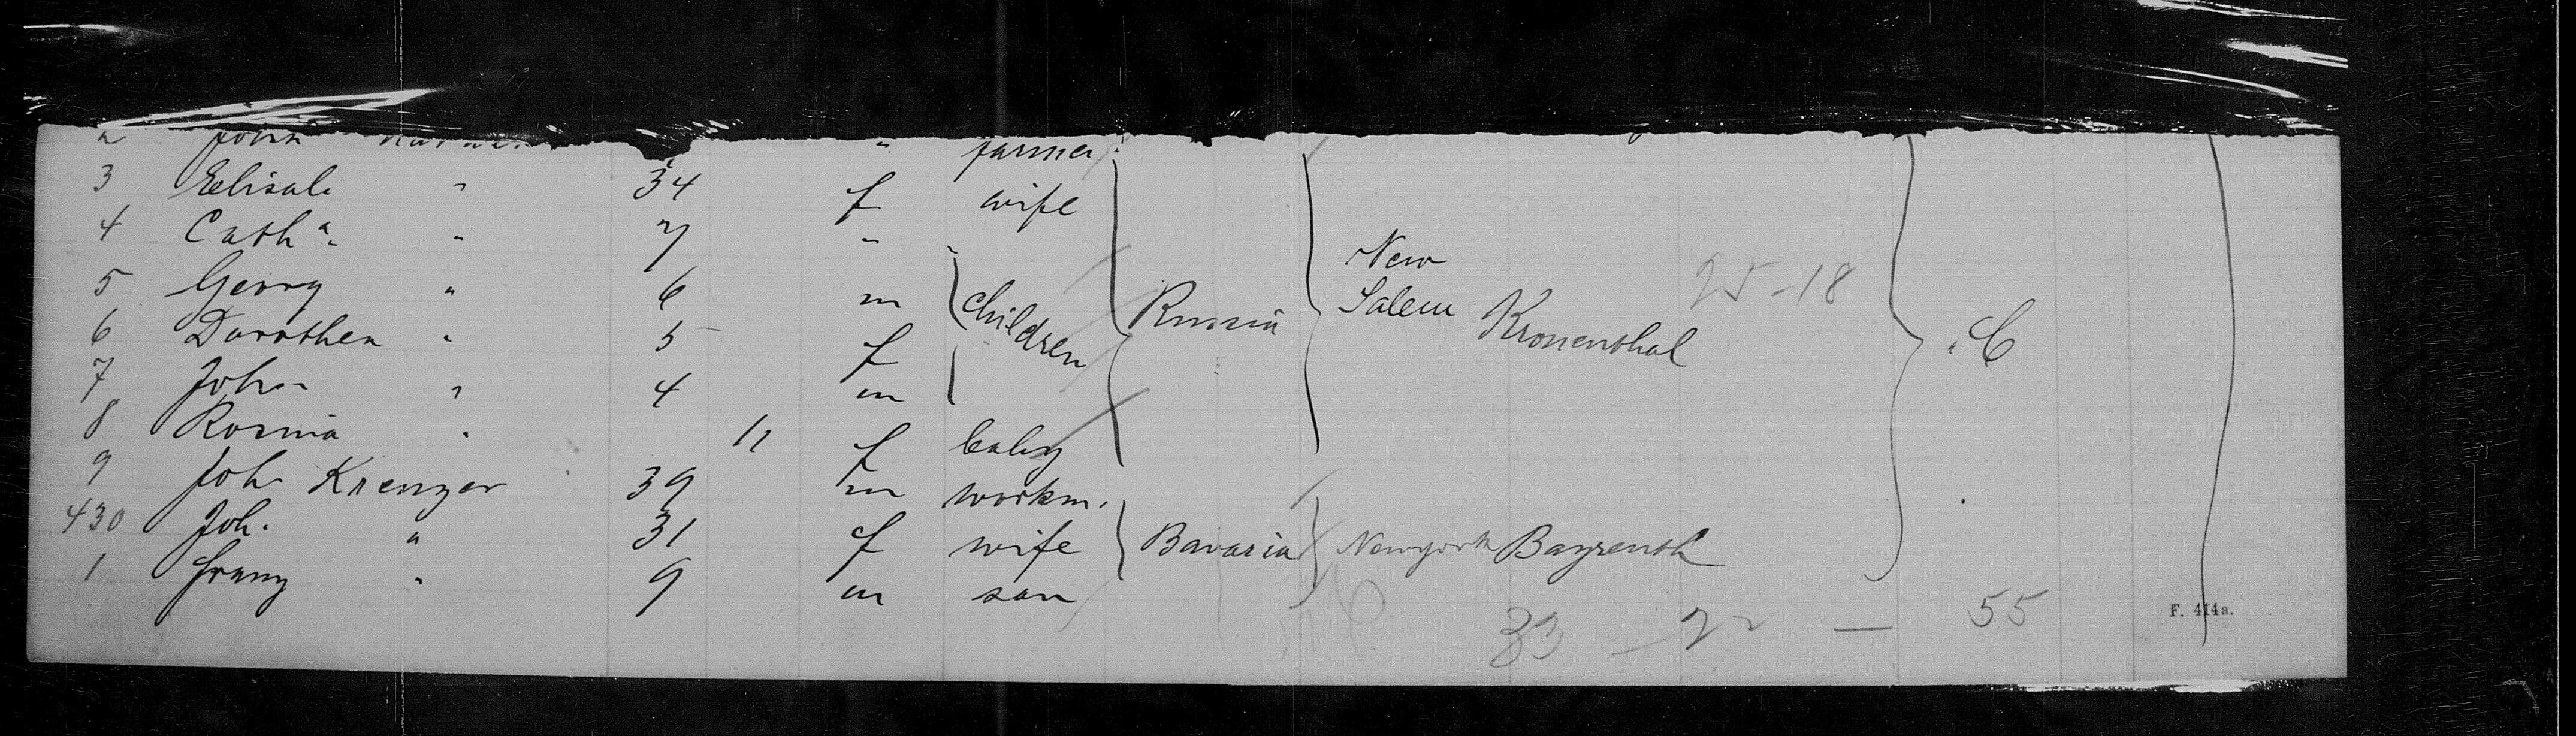 2 John " farmer
3 Elisab. " 34 f wife
4 Cath a. " 7 "
5 Georg " 6 m children Russia New Salem Kronenthal 25-18
6 Dorothea " 5 f
7 Joh. " 4 m C
8 Rosina " 11 f baby
9 Joh. Kreuzer 39 m workm.
430 Joh. " 31 f wife Bavaria Newyork Bayreuth
1 Franz " 9 m son
33 - 22 - 55
F. 414a.